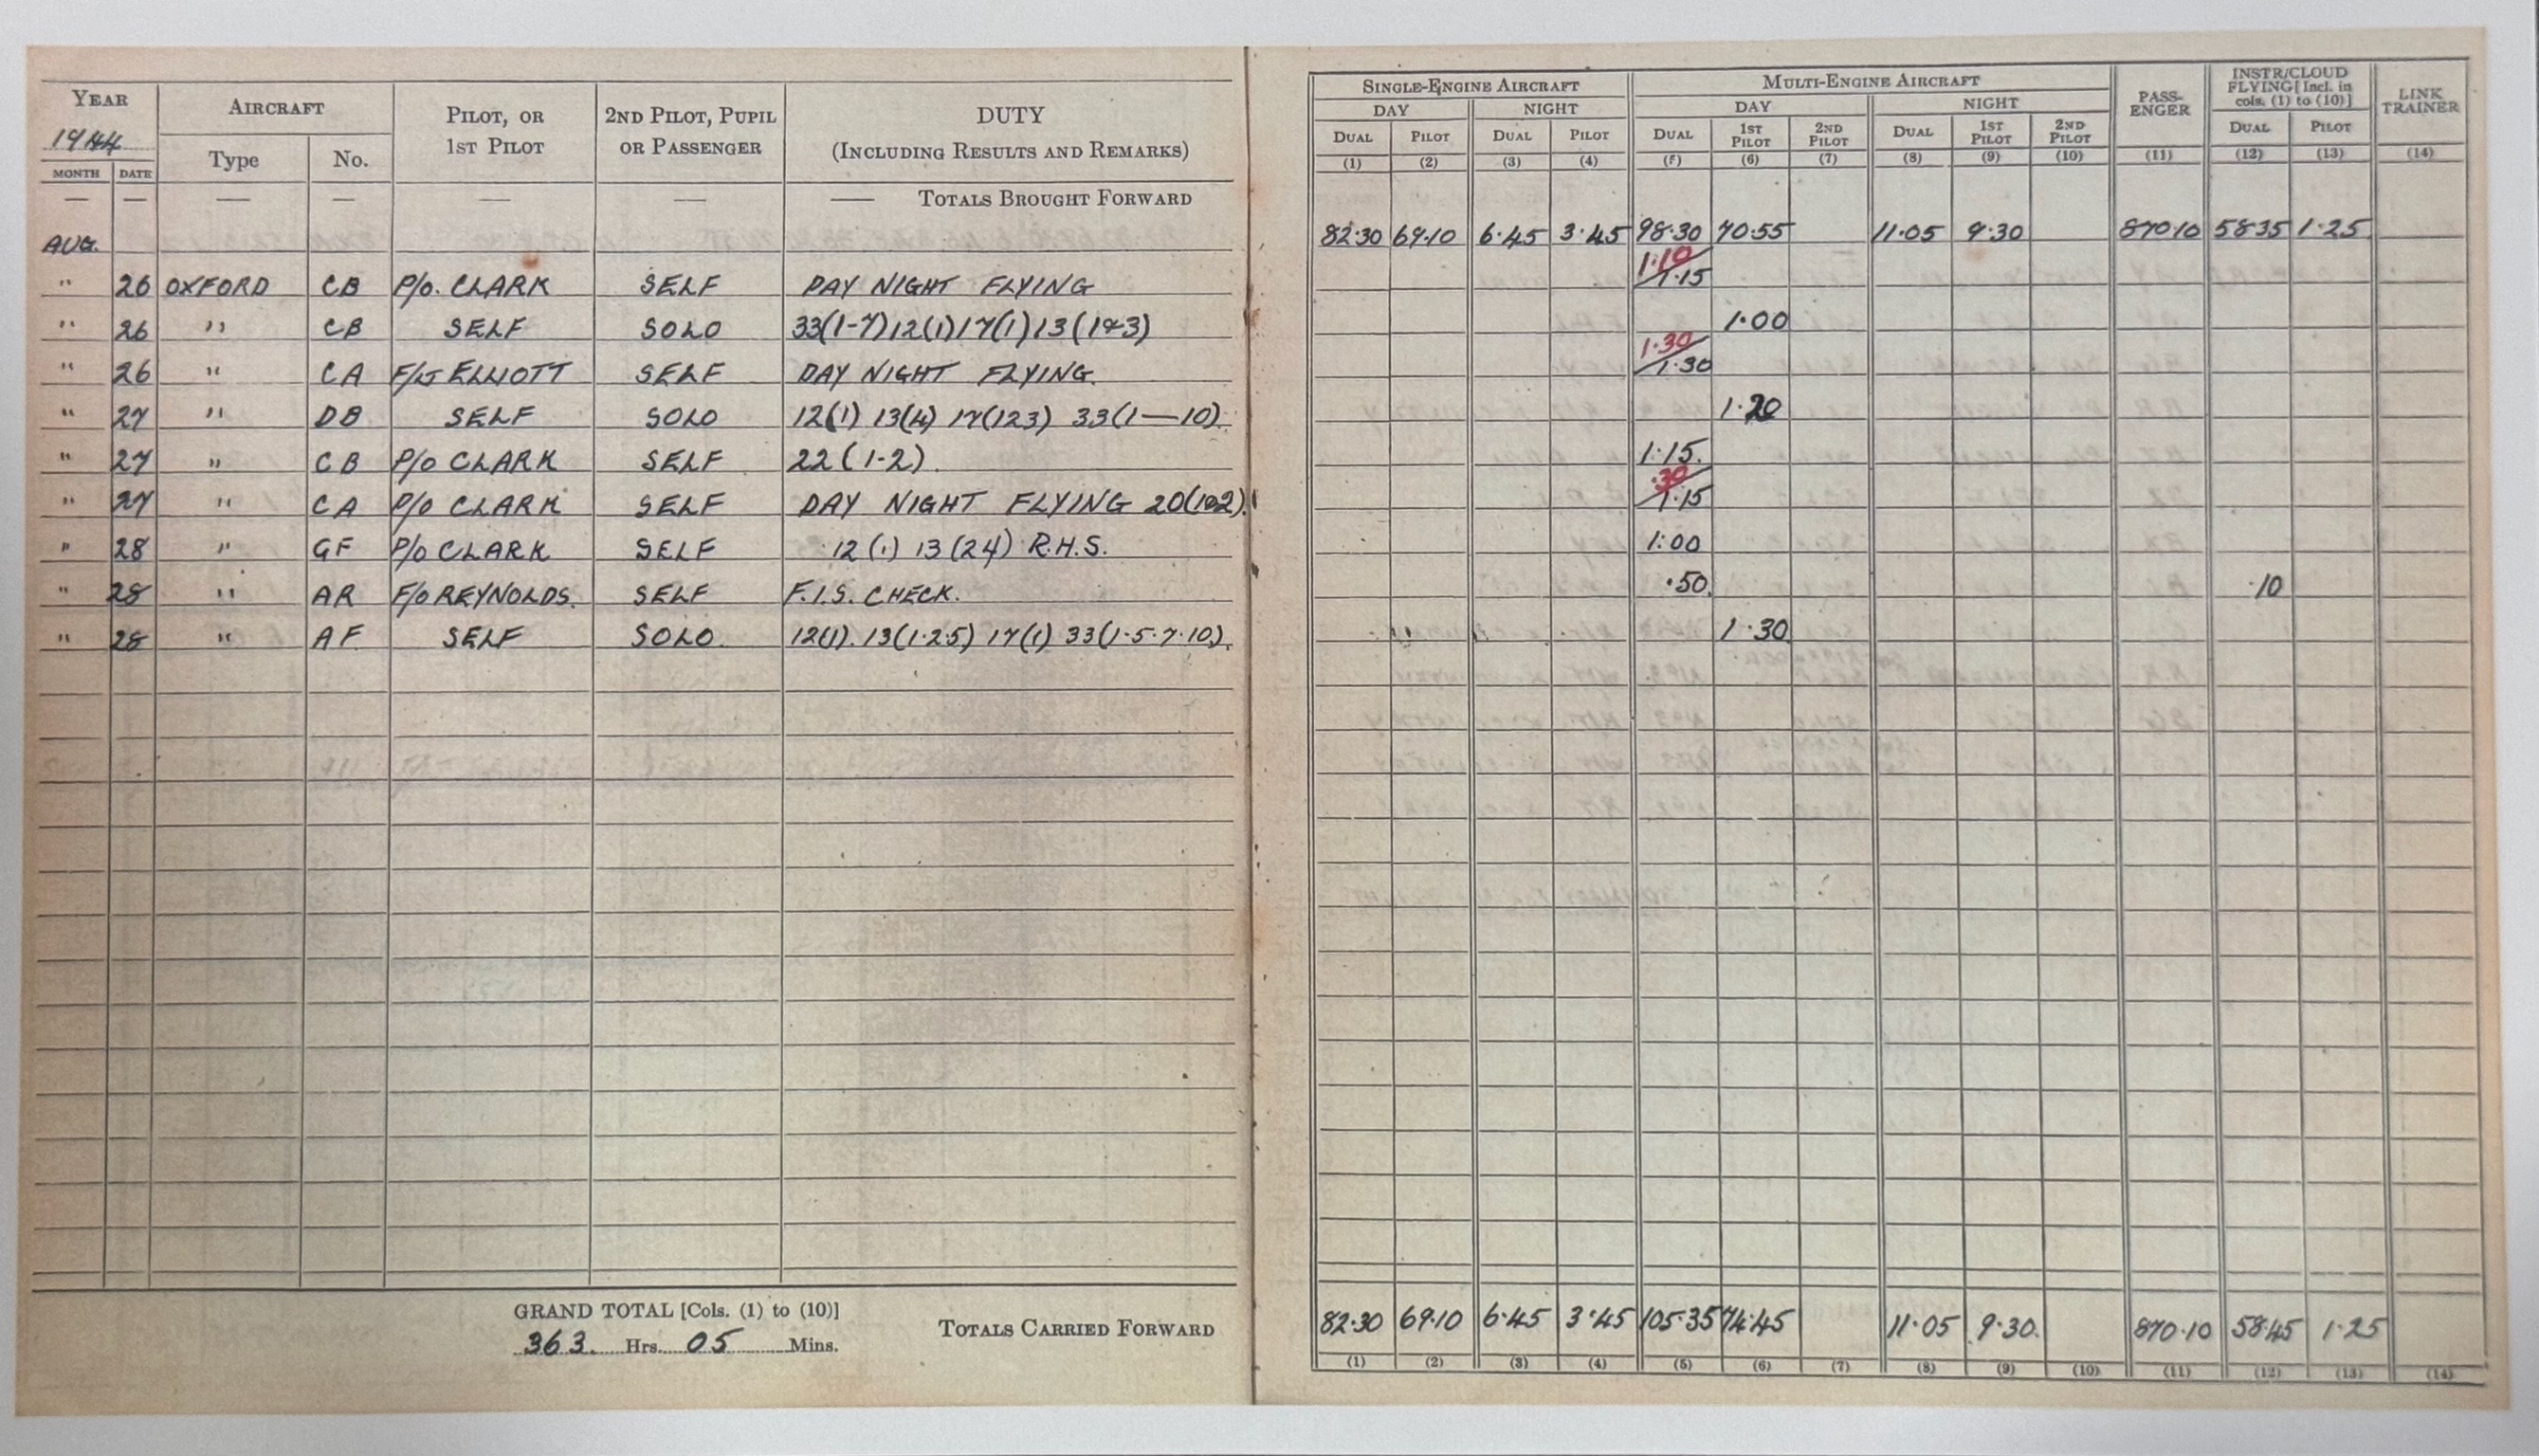 YEAR AIRCRAFT PILOT, OR 1ST PILOT 2ND PILOT, PUPIL OR PASSENGER DUTY (INCLUDING RESULTS AND REMARKS)
1944 Type No.
MONTH DATE
— — — — — — —— TOTALS BROUGHT FORWARD
AUG.
" 26 OXFORD CB P/O. CLARK SELF DAY NIGHT FLYING
" 26 " CB SELF SOLO 33(1-7) 12(1) 17(1) 13(1&3)
" 26 " CA F/LT ELLIOTT SELF DAY NIGHT FLYING.
" 27 " DB SELF SOLO 12(1) 13(4) 17(123) 33(1—10).
" 27 " CB P/O CLARK SELF 22(1-2).
" 27 " CA P/O CLARK SELF DAY NIGHT FLYING 20(1&2).
" 28 " GF P/O CLARK SELF 12(1) 13(24) R.H.S.
" 28 " AR F/O REYNOLDS. SELF F.I.S. CHECK.
" 28 " AF. SELF SOLO. 12(1). 13(1·2·5) 17(1) 33(1·5·7·10).
GRAND TOTAL [Cols. (1) to (10)]
363 Hrs. 05 Mins.
TOTALS CARRIED FORWARD
SINGLE-ENGINE AIRCRAFT MULTI-ENGINE AIRCRAFT PASS-ENGER INSTR/CLOUD FLYING [Incl. in cols. (1) to (10)] LINK TRAINER
DAY NIGHT DAY NIGHT
DUAL PILOT DUAL PILOT DUAL 1ST PILOT 2ND PILOT DUAL 1ST PILOT 2ND PILOT DUAL PILOT
(1) (2) (3) (4) (5) (6) (7) (8) (9) (10) (11) (12) (13) (14)
82·30 69·10 6·45 3·45 98·30 70·55 11·05 9·30 870·10 58·35 1·25
1·10
1·15
1·00
1·30
1·30
1·20
1·15.
·30
1·15
1:00
·50. ·10
1·30
82·30 69·10 6·45 3·45 105·35 74·45 11·05 9·30. 870·10 58·45 1·25
(1) (2) (3) (4) (5) (6) (7) (8) (9) (10) (11) (12) (13) (14)